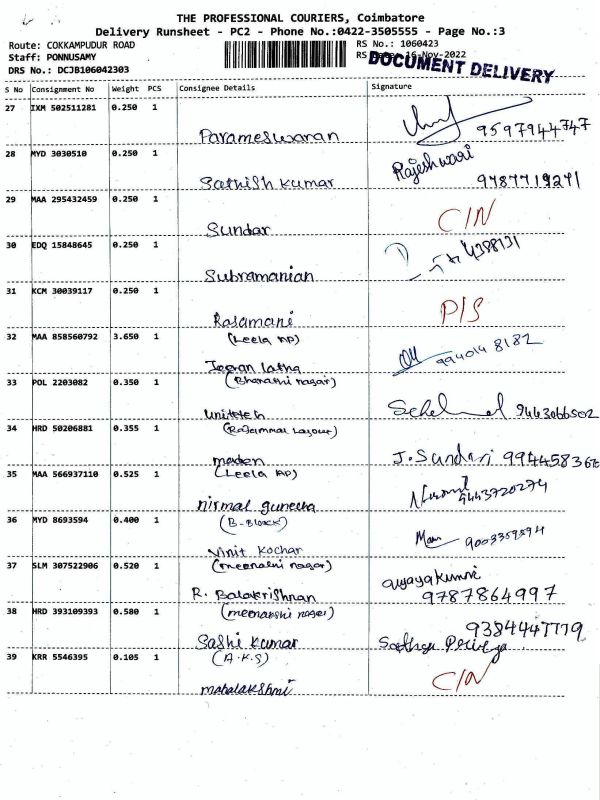 THE PROFESSIONAL COURIERS, Coimbatore
Delivery Runsheet - PC2 - Phone No.:0422-3505555 - Page No.:3
Route: COKKAMPUDUR ROAD RS No.: 1060423
Staff: PONNUSAMY RS Date: 16-Nov-2022
DRS No.: DCJB106042303 DOCUMENT DELIVERY
S No Consignment No Weight PCS Consignee Details Signature
27 IXM 502511281 0.250 1
Parameswaran 9597944747
28 MYD 3030510 0.250 1 Rajeshwari
Sathish Kumar 9787719271
29 MAA 295432459 0.250 1
Sundar C/N
30 EDQ 15848645 0.250 1
Subramanian
31 KCM 30039117 0.250 1
Rasamani P/S
32 MAA 858560792 3.650 1 (Leela AP)
Jeeran latha 994014 8182
33 POL 2203082 0.350 1 (Bharathi nagar)
Unitech 9443066502
34 HRD 50206881 0.355 1 (Rajammal Layout)
maden J. Sundari
35 MAA 566937110 0.525 1 (Leela AP)
nirmal guneera 9443720274
36 MYD 8693594 0.400 1 (B-Block)
Vinit Kochar 9003359594
37 SLM 307522906 0.520 1 (meenakshi nagar)
R. Balakrishnan 9787864997
38 HRD 393109393 0.580 1 (meenakshi nagar)
9384447779
Sashi Kumar
39 KRR 5546395 0.105 1 (A.K.S)
mahalakshmi C/N